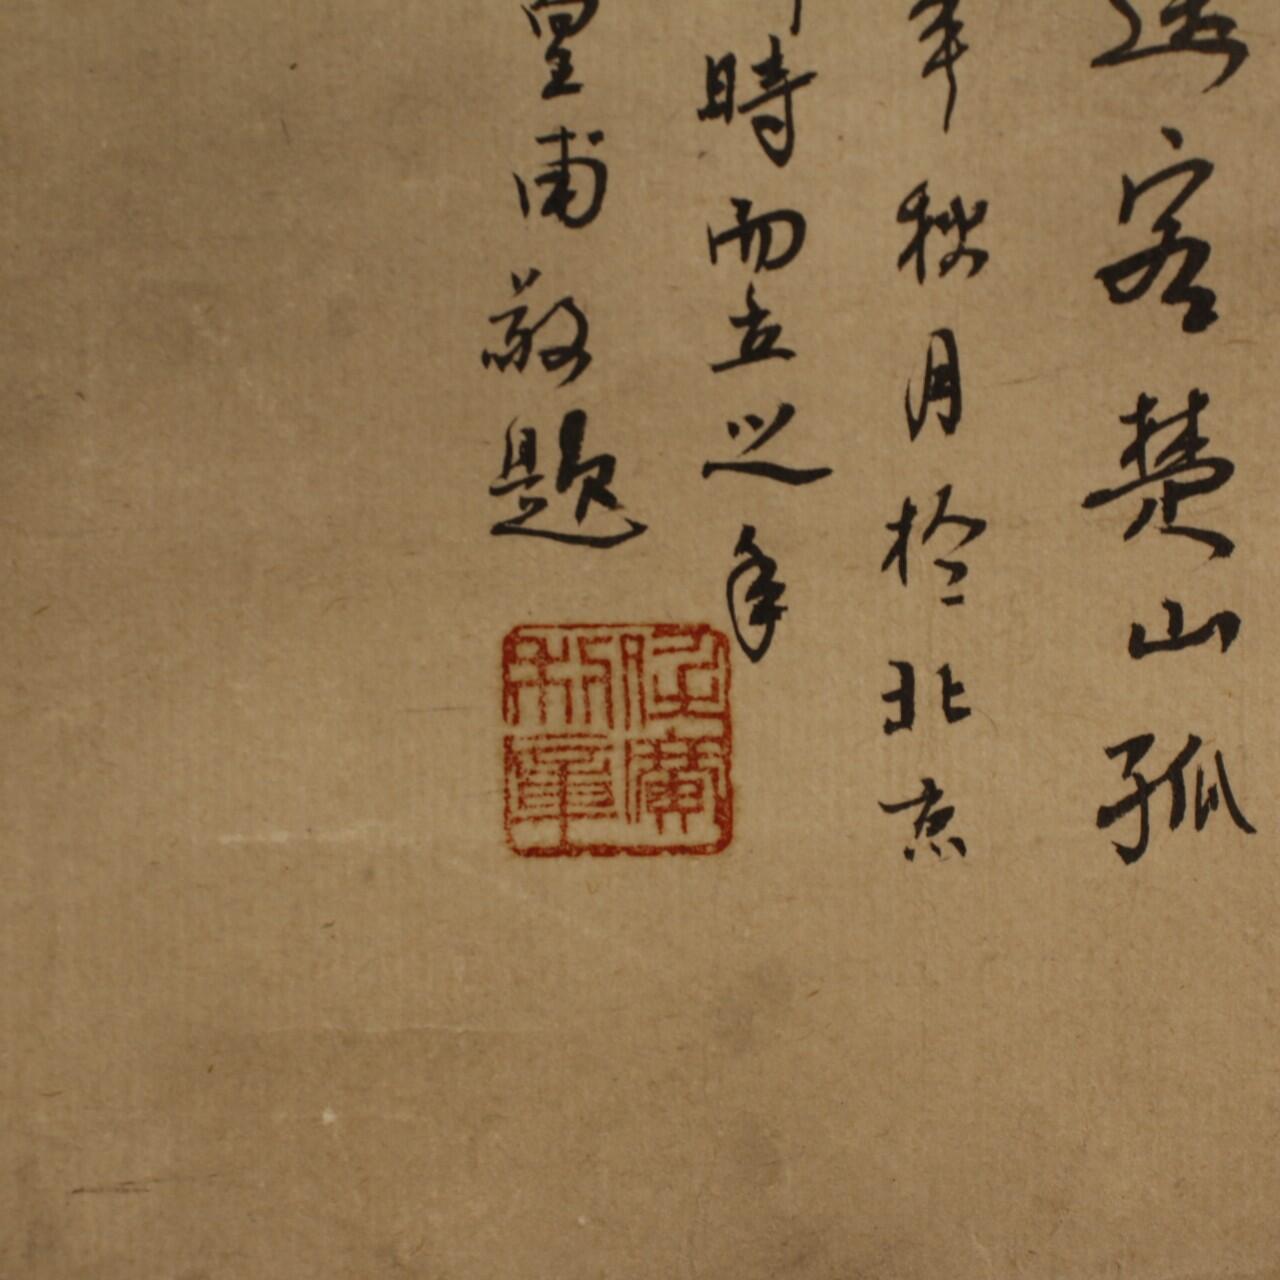 送客楚山孤
年秋月於北京
時而立之年
皇甫敬題